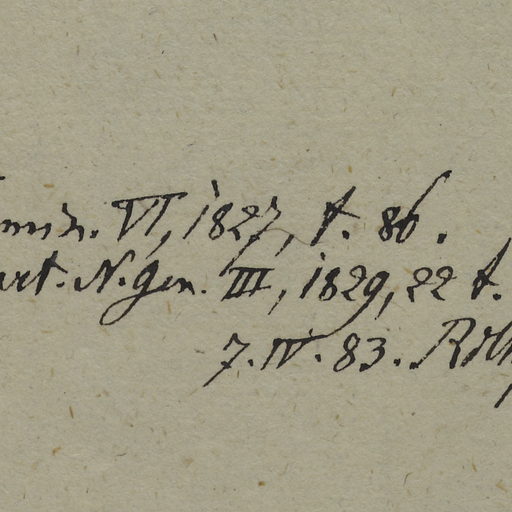 VI, 1827, t. 86.
art. N. gen. III, 1829, 22 t.
7. IV. 83.